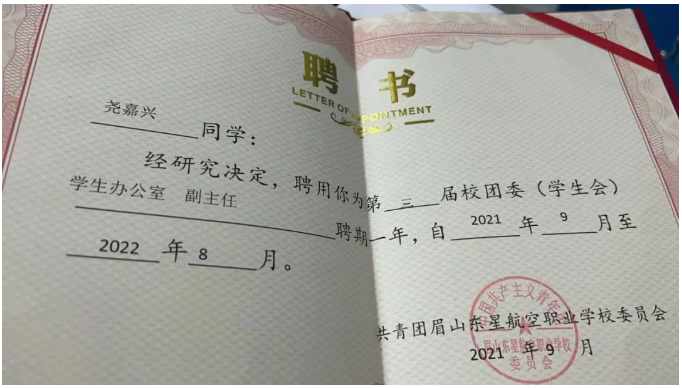 聘书
LETTER OF APPOINTMENT
尧嘉兴同学：
经研究决定，聘用你为第三届校团委（学生会）
学生办公室 副主任聘期一年，自2021年9月至
2022年8月。
共青团眉山东星航空职业学校委员会
2021年9月
中国共产主义青年团
眉山东星航空职业学校
委员会